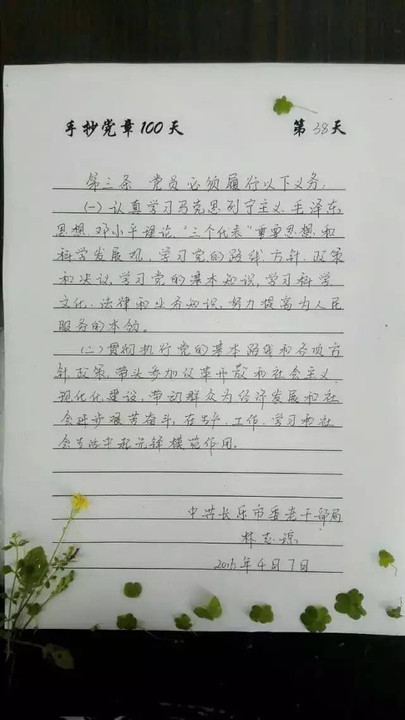 手抄党章100天 第38天
第三条 党员必须履行以下义务:
(一)认真学习马克思列宁主义、毛泽东
思想、邓小平理论、“三个代表”重要思想和
科学发展观,学习党的路线、方针、政策
和决议,学习党的基本知识,学习科学、
文化、法律和业务知识,努力提高为人民
服务的本领。
(二)贯彻执行党的基本路线和各项方
针、政策,带头参加改革开放和社会主义
现代化建设,带动群众为经济发展和社
会进步艰苦奋斗,在生产、工作、学习和社
会生活中起先锋模范作用。
中共长乐市委老干部局
林
2016年4月7日